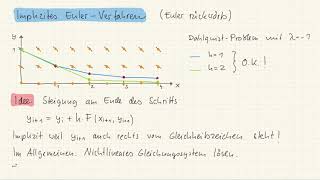 Implizites Euler-Verfahren (Euler rückwärts)
Dahlquist-Problem mit λ=-1
y
1
h=1
h=2
} O.K.!
0 1 2 3 4 x
Idee: Steigung am Ende des Schritts
yᵢ₊₁ = yᵢ + h·F(xᵢ₊₁, yᵢ₊₁)
Implizit weil yᵢ₊₁ auch rechts vom Gleichheitszeichen steht!
Im Allgemeinen: Nichtlineares Gleichungssystem lösen.